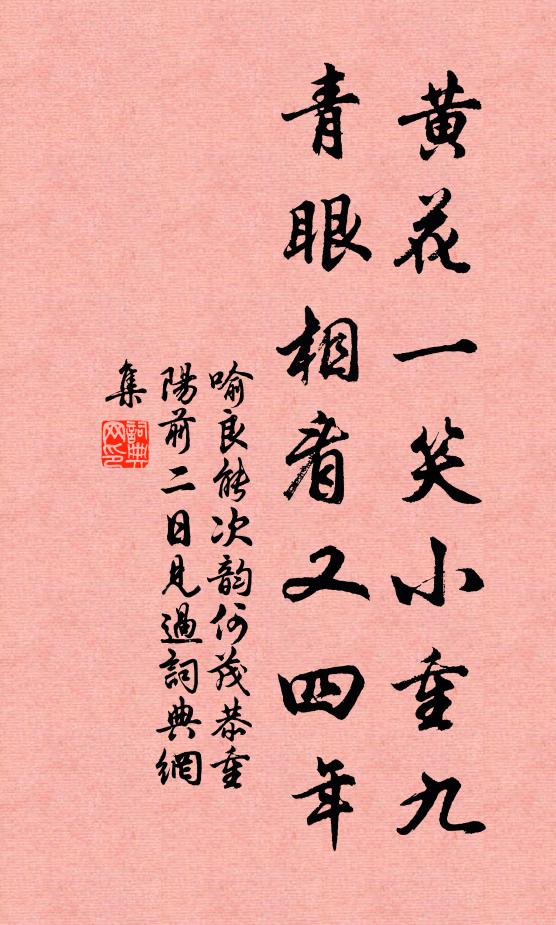 黃花一笑小重九
青眼相看又四年
喻良能次韵何茂恭重
陽前二日見過詞典網
集
詞典
网印